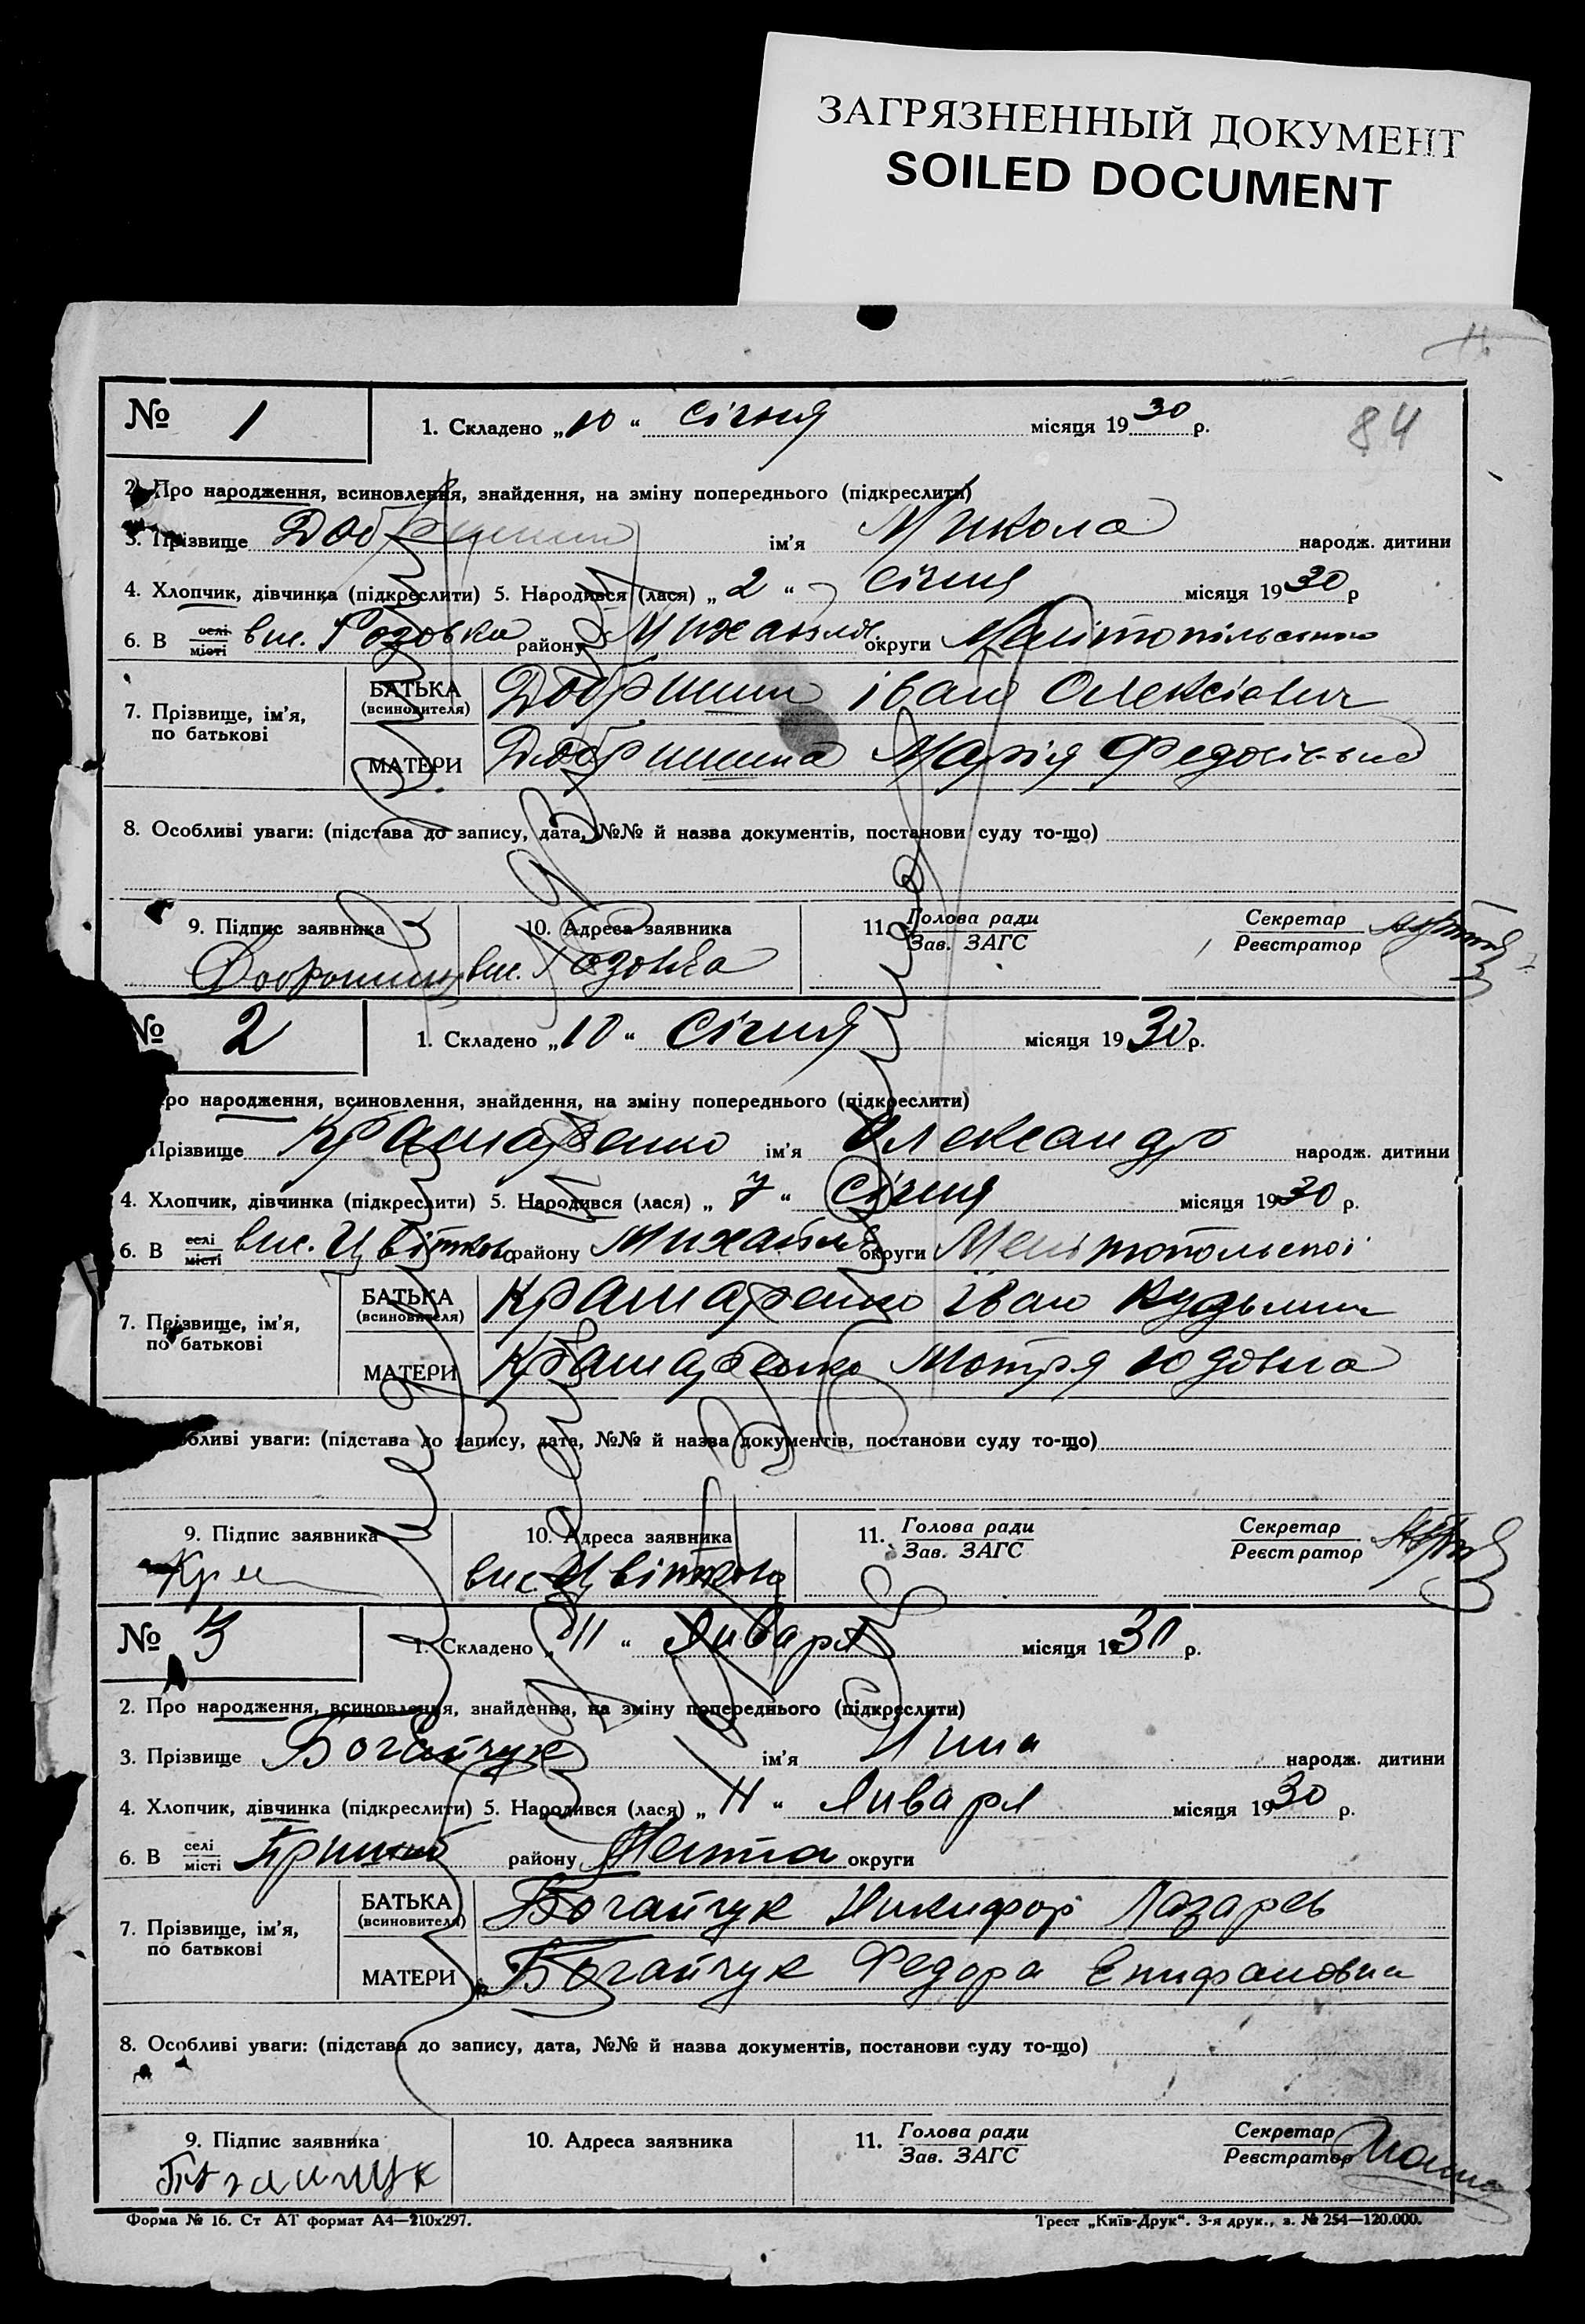 ЗАГРЯЗНЕННЫЙ ДОКУМЕНТ
SOILED DOCUMENT
84
№ 1 1. Складено „10“ січня місяця 1930 р.
2. Про народження, всиновлення, знайдення, на зміну попереднього (підкреслити)
3. Прізвище ім'я Микола народж. дитини
4. Хлопчик, дівчинка (підкреслити) 5. Народився (лася) „2“ січня місяця 1930 р
6. В селі місті вис. Розовка району Михайл. округи
7. Прізвище, ім'я, по батькові
БАТЬКА (всиновителя) Добришин Іван Олексієвич
МАТЕРИ Добришина Марія
8. Особливі уваги: (підстава до запису, дата, №№ й назва документів, постанови суду то-що)
9. Підпис заявника 10. Адреса заявника 11. Голова ради Зав. ЗАГС Секретар Реєстратор
вис. Розовка
№ 2 1. Складено „10“ Січня місяця 1930 р.
ро народження, всиновлення, знайдення, на зміну попереднього (підкреслити)
Прізвище Крамаренко ім'я Олександр народж. дитини
4. Хлопчик, дівчинка (підкреслити) 5. Народився (лася) „7“ Січня місяця 1930 р.
6. В селі місті вис. Цвіткова району Михайл. округи
7. Прізвище, ім'я, по батькові
БАТЬКА (всиновителя) Крамаренко Іван Кузьмич
МАТЕРИ Крамаренко Мотря Юдовна
бливі уваги: (підстава до запису, дата, №№ й назва документів, постанови суду то-що)
9. Підпис заявника 10. Адреса заявника 11. Голова ради Зав. ЗАГС Секретар Реєстратор
вис. Цвіткова
№ 3 1. Складено „11“ Января місяця 1930 р.
2. Про народження, всиновлення, знайдення, на зміну попереднього (підкреслити)
3. Прізвище Богайчук ім'я Нина народж. дитини
4. Хлопчик, дівчинка (підкреслити) 5. Народився (лася) „11“ Января місяця 1930 р.
6. В селі місті району округи
7. Прізвище, ім'я, по батькові
БАТЬКА (всиновителя) Богайчук Никифор Лазарев
МАТЕРИ Богайчук Федора Епифановна
8. Особливі уваги: (підстава до запису, дата, №№ й назва документів, постанови суду то-що)
9. Підпис заявника 10. Адреса заявника 11. Голова ради Зав. ЗАГС Секретар Реєстратор
Форма № 16. Ст АТ формат А4—210х297. Трест „Київ-Друк“. 3-я друк., з. № 254—120.000.